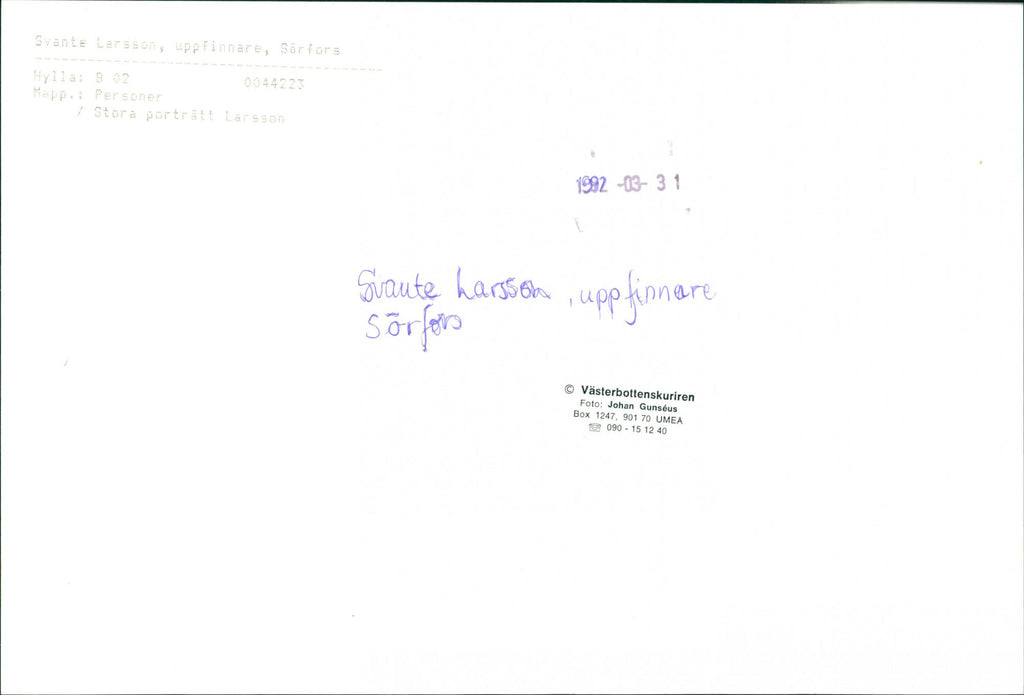 Svante Larsson, uppfinnare, Sörfors
Hylla: B 02 0044223
Mapp.: Personer
/ Stora porträtt Larsson
1992 -03- 31
Svante Larsson, uppfinnare
Sörfors
© Västerbottenskuriren
Foto: Johan Gunséus
Box 1247, 901 70 UMEA
☏ 090 - 15 12 40